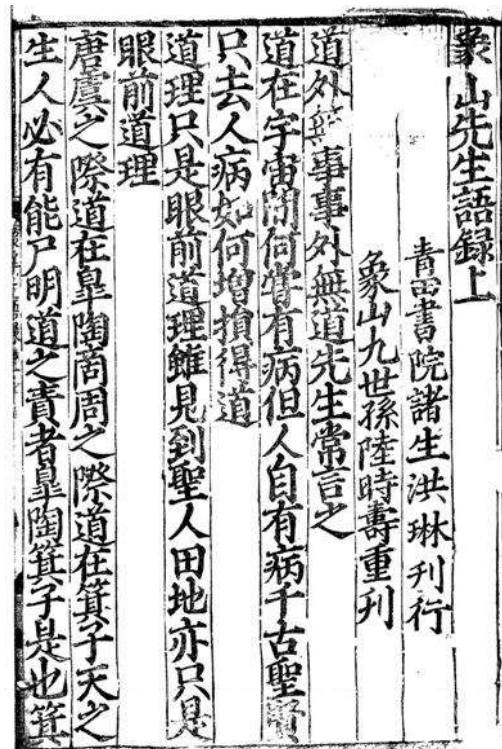 象山先生語録上
青田書院諸生洪琳刊行
象山九世孫陸時壽重刊
道外無事事外無道先生常言之
道在宇宙間何嘗有病但人自有病千古聖賢
只去人病如何增損得道
道理只是眼前道理雖見到聖人田地亦只是
眼前道理
唐虞之際道在皐陶商周之際道在箕子天之
生人必有能尸明道之責者皐陶箕子是也箕